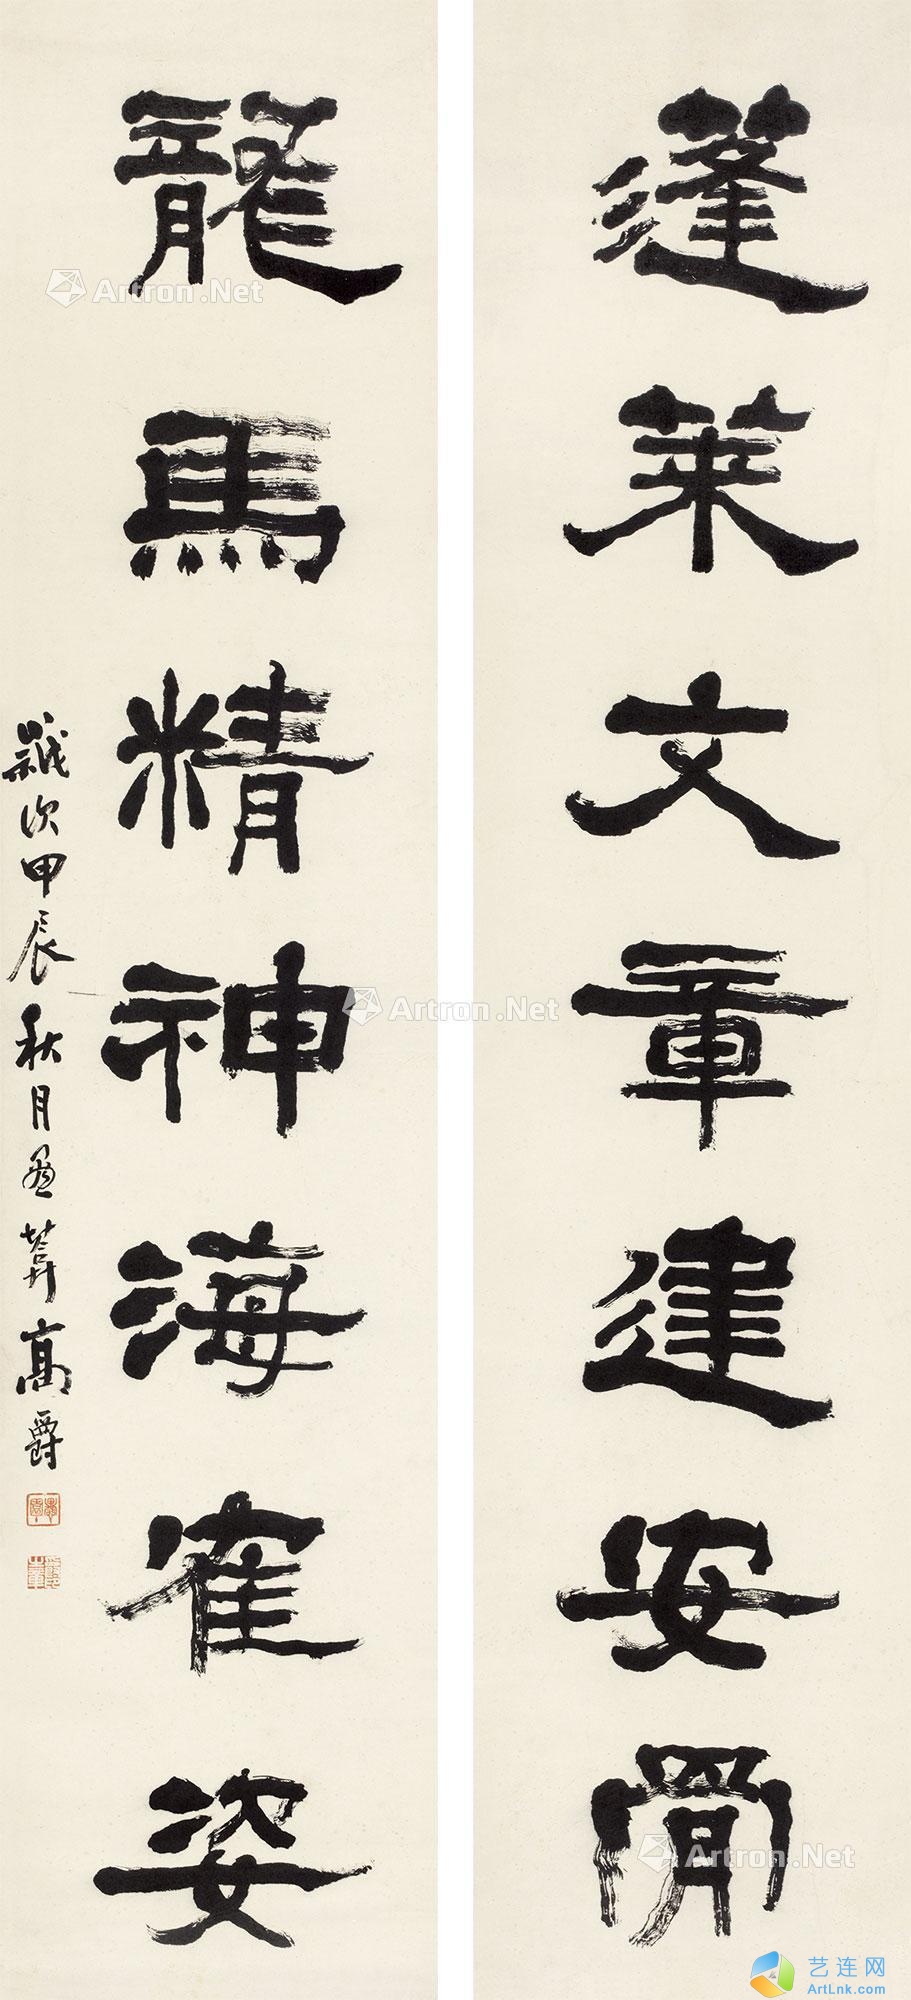 蓬萊文章建安骨
龍馬精神海寉姿
歲次甲辰秋月
高爵
Artron.Net
Artron.Net
Artron.Net
艺连网
ArtLnk.com